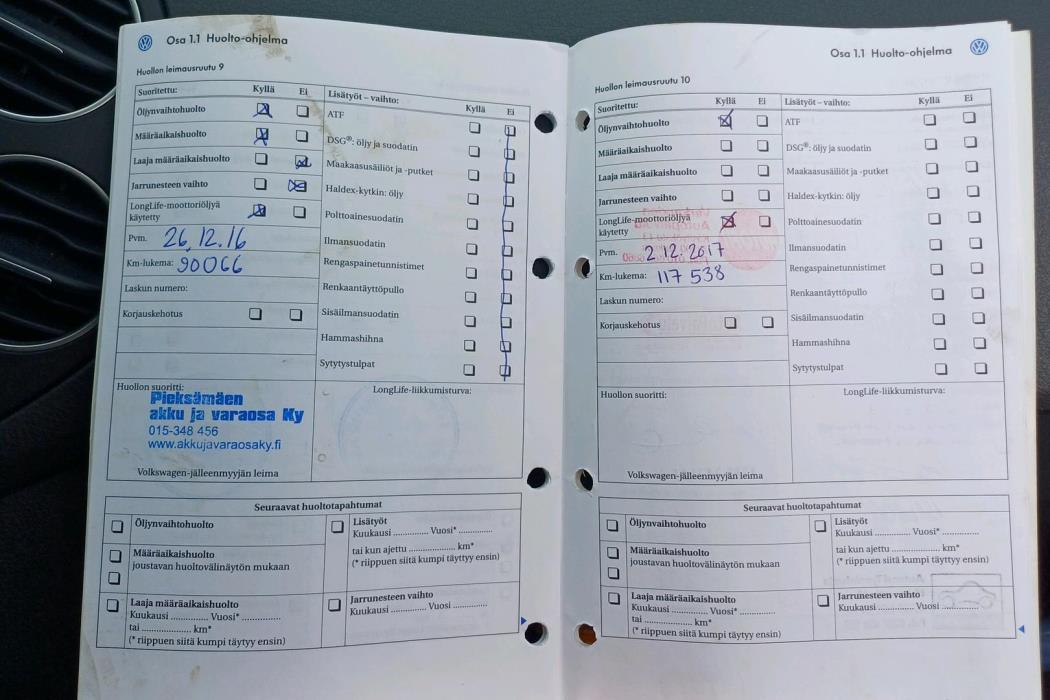 Osa 1.1 Huolto-ohjelma
Huollon leimausruutu 9
Suoritettu: Kyllä Ei
Öljynvaihtohuolto
Määräaikaishuolto
Laaja määräaikaishuolto
Jarrunesteen vaihto
LongLife-moottoriöljyä
käytetty
Pvm. 26.12.16
Km-lukema: 90066
Laskun numero:
Korjauskehotus
Lisätyöt – vaihto: Kyllä Ei
ATF
DSG®: öljy ja suodatin
Maakaasusäiliöt ja -putket
Haldex-kytkin: öljy
Polttoainesuodatin
Ilmansuodatin
Rengaspainetunnistimet
Renkaantäyttöpullo
Sisäilmansuodatin
Hammashihna
Sytytystulpat
Huollon suoritti:
Pieksämäen
akku ja varaosa Ky
015-348 456
www.akkujavaraosaky.fi
Volkswagen-jälleenmyyjän leima
LongLife-liikkumisturva:
Seuraavat huoltotapahtumat
Öljynvaihtohuolto
Määräaikaishuolto
joustavan huoltovälinäytön mukaan
Laaja määräaikaishuolto
Kuukausi .............. Vuosi* ..............
tai .................... km*
(* riippuen siitä kumpi täytyy ensin)
Lisätyöt
Kuukausi ............. Vuosi* .............
tai kun ajettu ................... km*
(* riippuen siitä kumpi täyttyy ensin)
Jarrunesteen vaihto
Kuukausi ............. Vuosi .............
Osa 1.1 Huolto-ohjelma
Huollon leimausruutu 10
Suoritettu: Kyllä Ei
Öljynvaihtohuolto
Määräaikaishuolto
Laaja määräaikaishuolto
Jarrunesteen vaihto
LongLife-moottoriöljyä
käytetty
Pvm. 2.12.2017
Km-lukema: 117 538
Laskun numero:
Korjauskehotus
Lisätyöt – vaihto: Kyllä Ei
ATF
DSG®: öljy ja suodatin
Maakaasusäiliöt ja -putket
Haldex-kytkin: öljy
Polttoainesuodatin
Ilmansuodatin
Rengaspainetunnistimet
Renkaantäyttöpullo
Sisäilmansuodatin
Hammashihna
Sytytystulpat
Huollon suoritti:
Volkswagen-jälleenmyyjän leima
LongLife-liikkumisturva:
Seuraavat huoltotapahtumat
Öljynvaihtohuolto
Määräaikaishuolto
joustavan huoltovälinäytön mukaan
Laaja määräaikaishuolto
Kuukausi ............. Vuosi* .............
tai .................... km*
(* riippuen siitä kumpi täytyy ensin)
Lisätyöt
Kuukausi ............. Vuosi* .............
tai kun ajettu ................... km*
(* riippuen siitä kumpi täyttyy ensin)
Jarrunesteen vaihto
Kuukausi ............. Vuosi .............